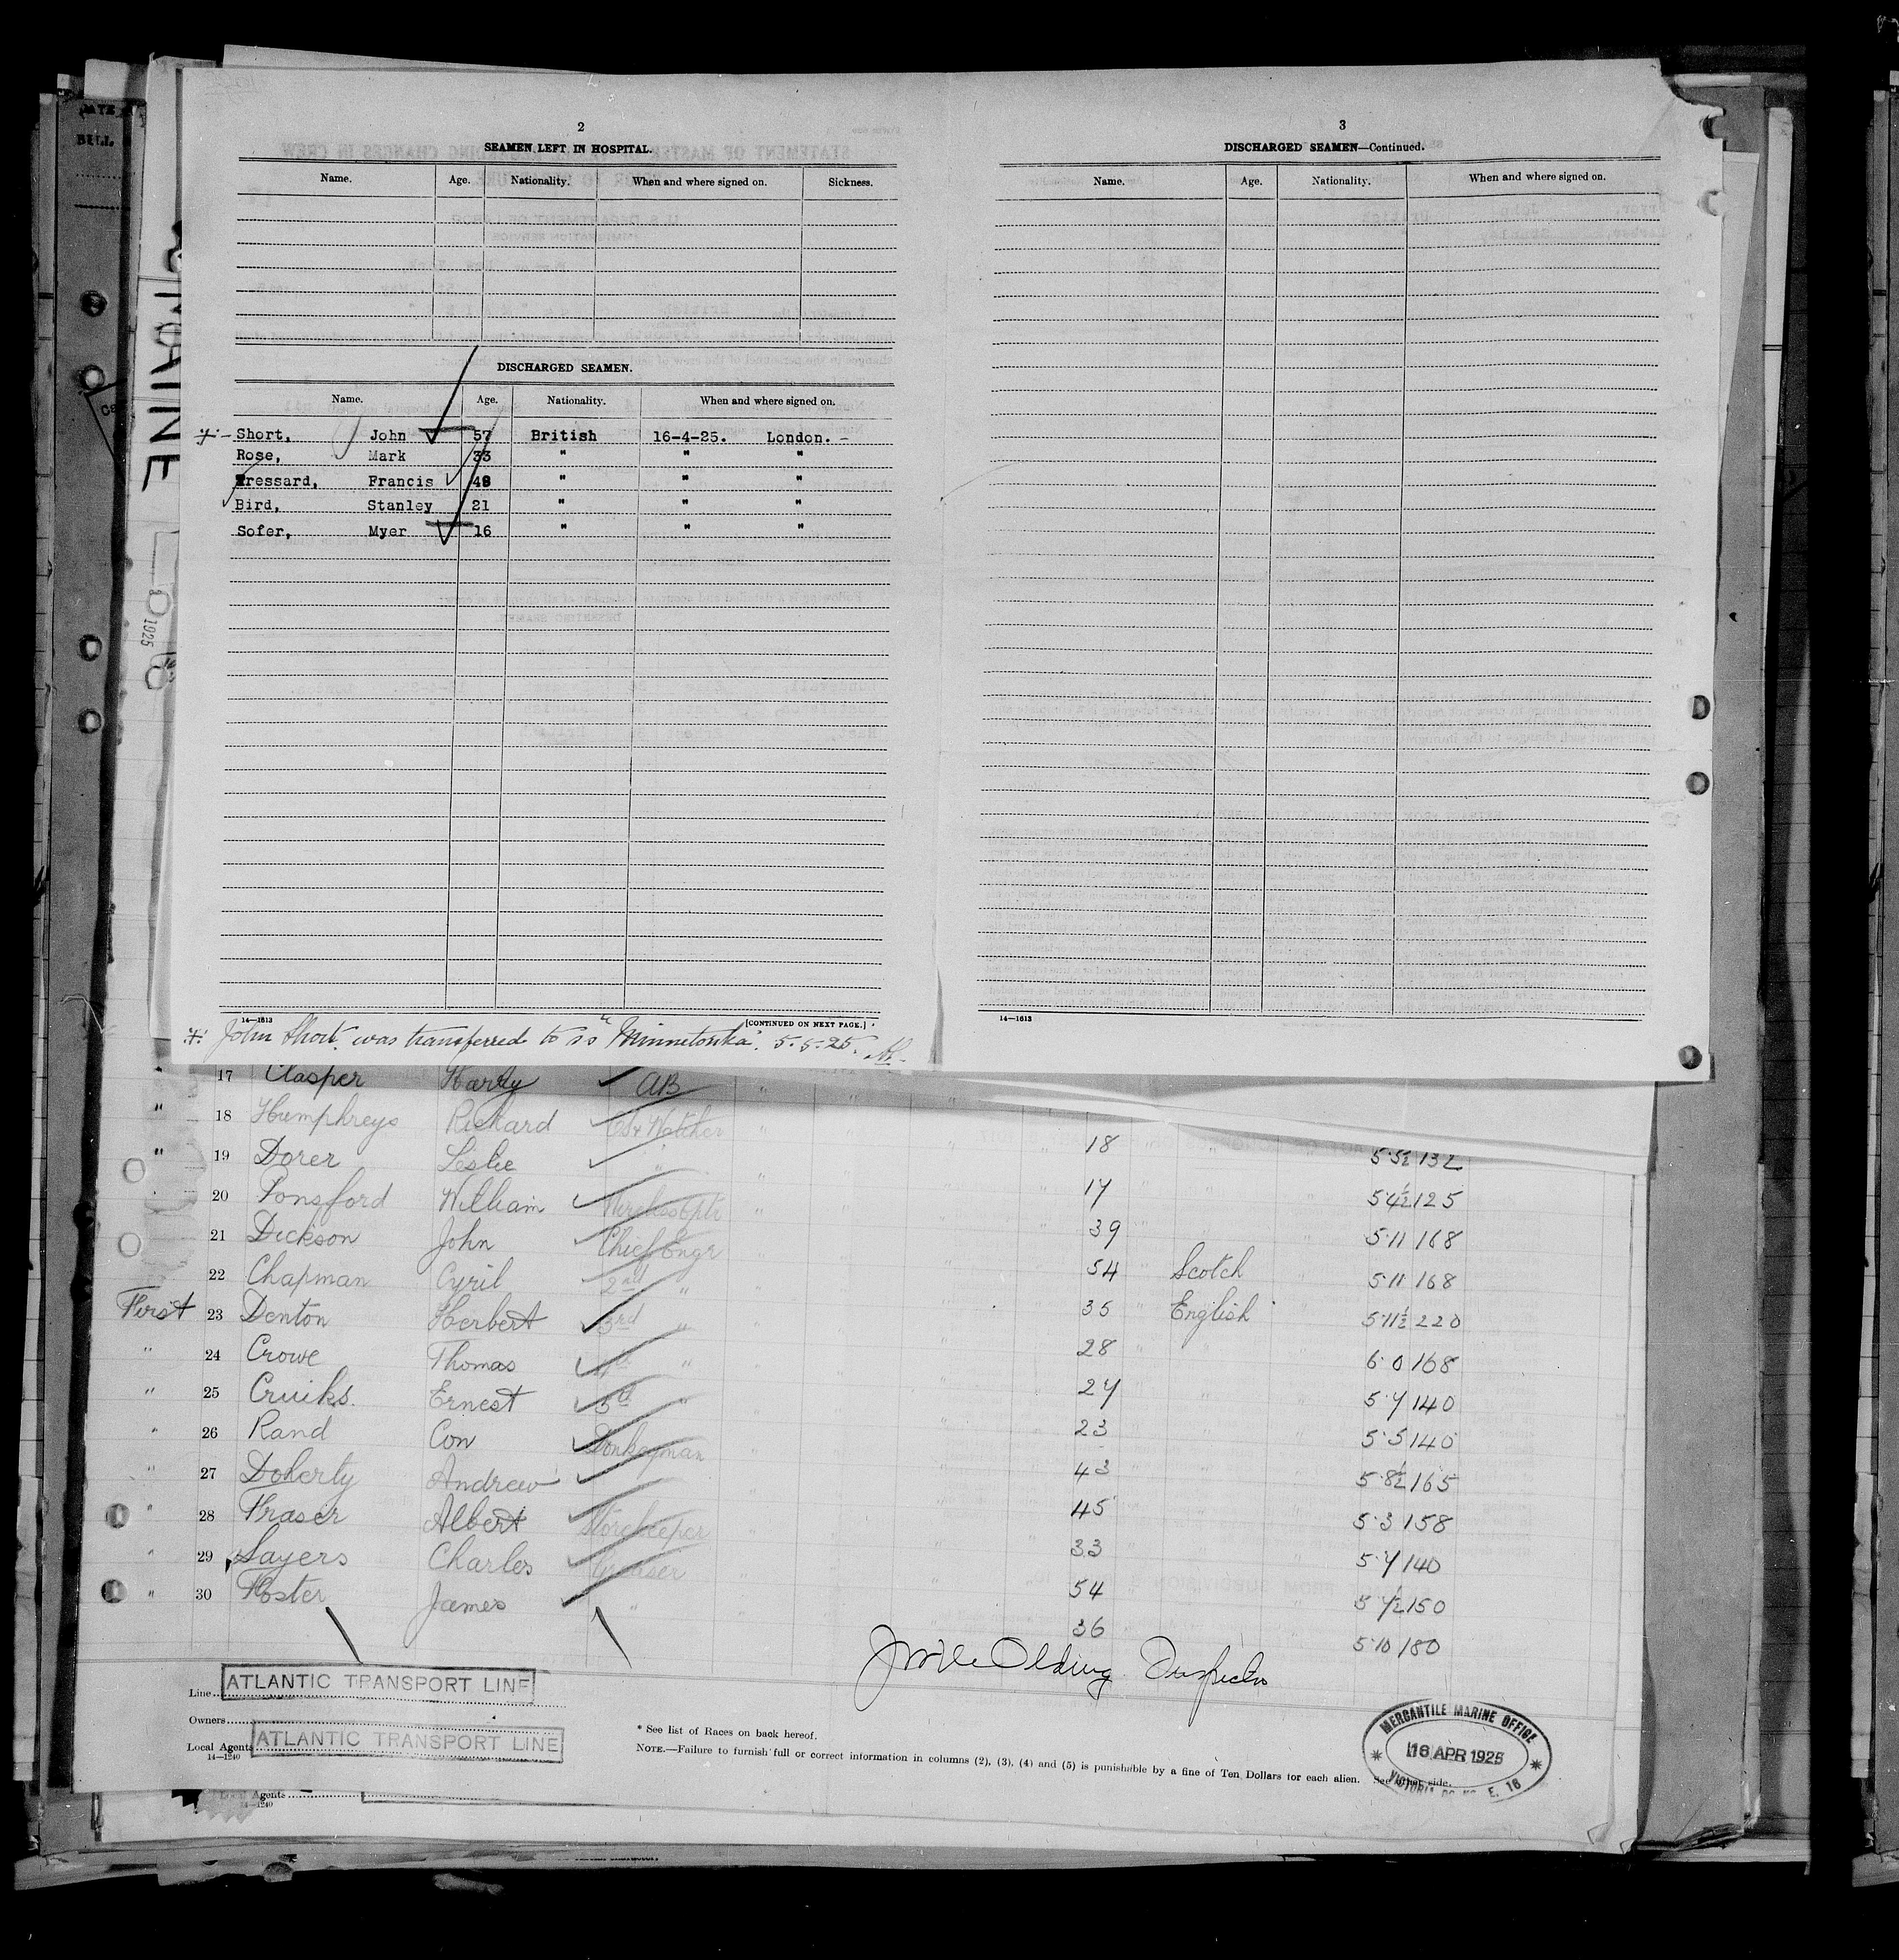 2
SEAMEN LEFT IN HOSPITAL.
Name. Age. Nationality. When and where signed on. Sickness.
DISCHARGED SEAMEN.
Name. Age. Nationality. When and where signed on.
Short, John 57 British 16-4-25. London. -
Rose, Mark 33 " " "
ressard, Francis 48 " " "
Bird, Stanley 21 " " "
Sofer, Myer 16 " " "
14—1613 [CONTINUED ON NEXT PAGE.]
John Short was transferred to ss "Minnetonka". 5.5.25.
3
DISCHARGED SEAMEN—Continued.
Name. Age. Nationality. When and where signed on.
14—1613
17 Clasper Harry AB
" 18 Humphreys Richard
" 19 Dorer Leslie " 18 5·5½ 132
20 Ponsford William 17 5·4½ 125
21 Dickson John Chief Engr 39 5·11 168
22 Chapman Cyril 2nd " 54 Scotch 5·11 168
First 23 Denton Herbert 3rd " 35 English 5·11½ 220
" 24 Crowe Thomas 4th " 28 6·0 168
" 25 Cruiks. Ernest 5th " 27 5·7 140
" 26 Rand Con Donkeyman 23 5·5 140
" 27 Doherty Andrew 43 5·8½ 165
" 28 Fraser Albert Storekeeper 45 5·3 158
" 29 Sayers Charles Greaser 33 5·7 140
" 30 Foster James " 54 5·½ 150
36 5·10 180
Olding Inspector
Line ATLANTIC TRANSPORT LINE
Owners
Local Agents ATLANTIC TRANSPORT LINE
14—1240
* See list of Races on back hereof.
NOTE.—Failure to furnish full or correct information in columns (2), (3), (4) and (5) is punishable by a fine of Ten Dollars for each alien. See other side.
MERCANTILE MARINE OFFICE
16 APR 1925
VICTORIA E. 16
Local Agents
14—1240
1925